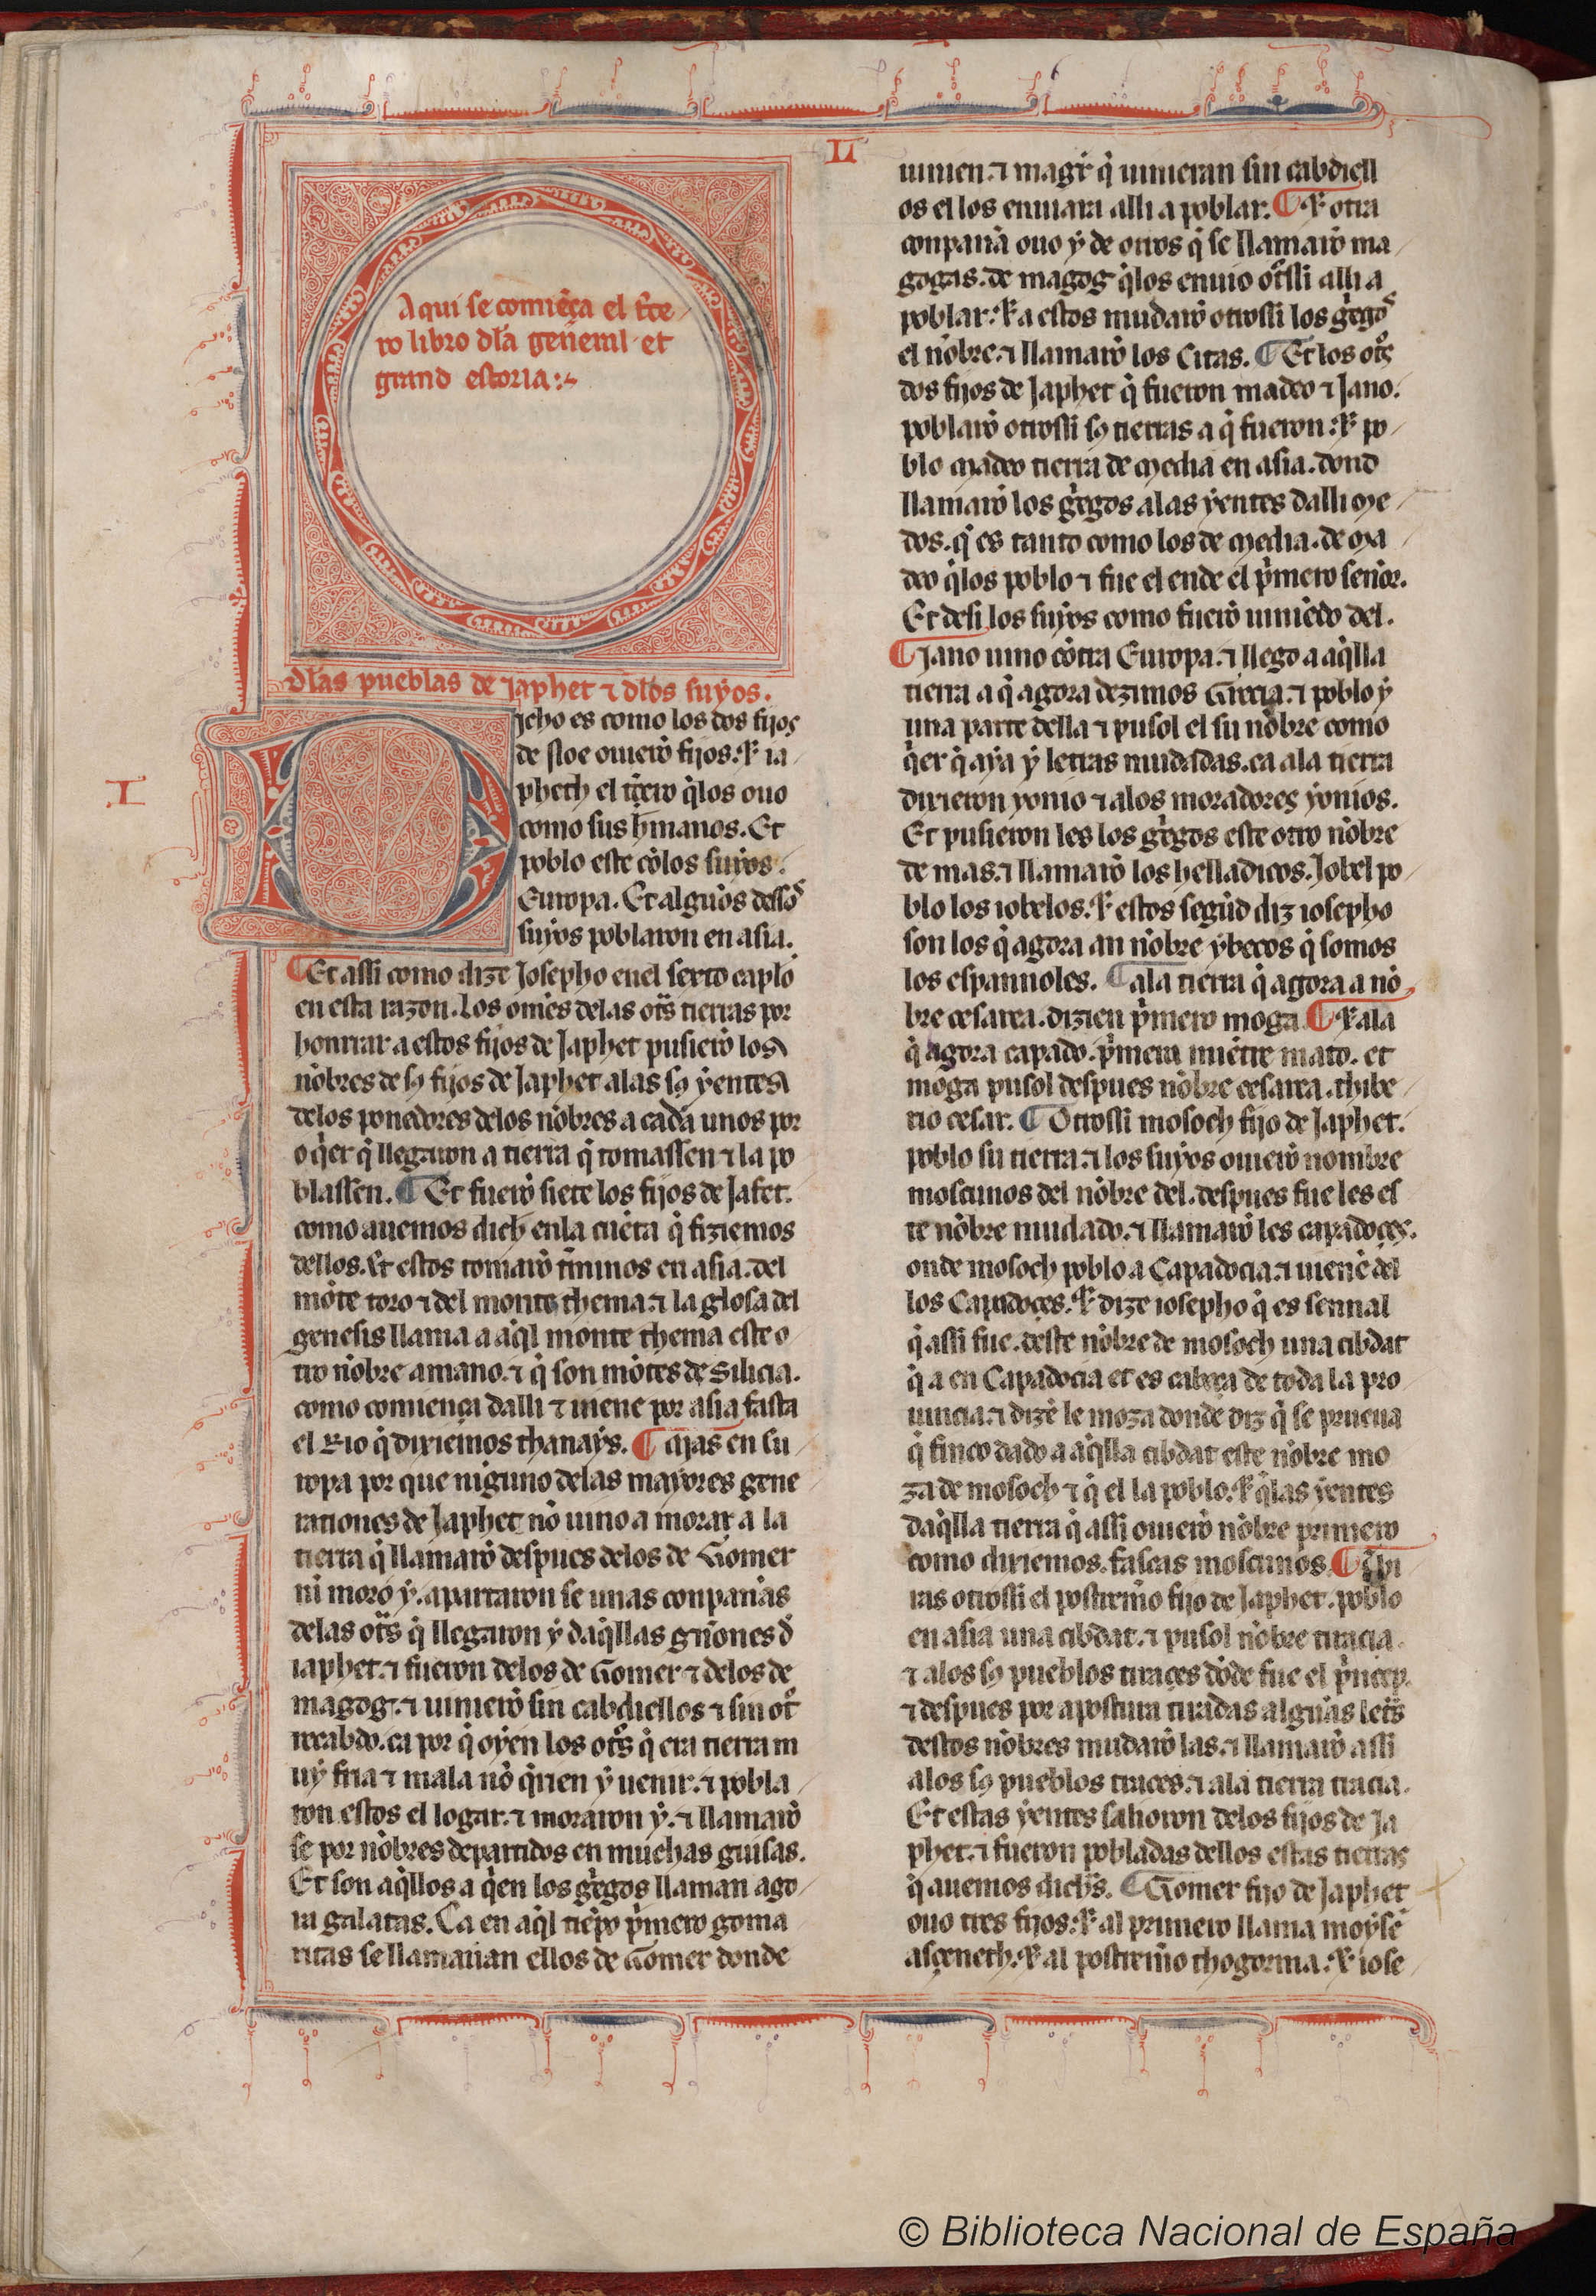 LI
Aqui se comiẽça el t̃ce
ro libro dl̃a gen̄eral et
grand estoria:
dl̃as pueblas de japhet ⁊ dl̃os suyos.
I
Dicho es como los dos fijos
de Noe ouierõ fijos. Et ia
pheth el t̃cero q̃los ouo
como sus h̃manos. Et
poblo este cõ los suyos
Europa. Et algũos dessõs
suyos poblaron en asia.
Et assi como dize Josepho enel sexto capl̃o
en esta razon. Los omẽs delas ot̃s tierras por
honrrar a estos fijos de Japhet pusierõ los
nõbres de sꝯ fijos de Japhet alas sꝯ yentes
delos ponedores delos nõbres a cada unos por
o q̃er q̃ llegaron a tierra q̃ tomassen ⁊ la po
blassen. Et fuerõ siete los fijos de Jafet.
como auemos dich̃ enla cuẽta q̃ fiziemos
dellos. Et estos tomarõ t̃minos en asia. del
mõte toro ⁊ del monte thema. ⁊ la glosa del
genesis llama a aq̃l monte thema este o
tro nõbre amano. ⁊ q̃ son mõtes de Silicia.
como comiença dalli ⁊ uiene por asia fasta
el Rio q̃ dixiemos thanays. Mas en eu
ropa por que niguno delas mayores gene
rationes de Japhet nõ uino a morar a la
tierra q̃ llamarõ despues delos de Gomer
ni moro y. apartaron se unas conpanñas
delas ot̃s q̃ llegaron y daq̃llas gñones d̃
iaphet. ⁊ fueron delos de Gomer ⁊ delos de
magog. ⁊ uinierõ sin cabdiellos ⁊ sin ot̃
recabdo. ca por q̃ oyen los ot̃s q̃ era tierra m
uy fria ⁊ mala nõ q̃rien y uenir. ⁊ pobla
ron estos el logar. ⁊ moraron y. ⁊ llamarõ
se por nõbres departidos en muchas guisas.
Et son aq̃llos a q̃en los g̃egos llaman ago
ra galatas. Ca en aq̃l tiẽpo p̃mero goma
ritas se llamauan ellos de Gomer donde
uinien. ⁊ mag̃r q̃ uinieran sin cabdiell
os el los enuiara alli a poblar. Et otra
conpanña ouo y de otros q̃ se llamarõ ma
gogas. de magog q̃los enuio ot̃ssi alli a
poblar. Et a estos mudarõ otrossi los g̃egos
el nõbre. ⁊ llamarõ los Citas. Et los ot̃s
dos fijos de Japhet q̃ fueron madeo ⁊ Jano.
poblarõ otrossi sꝯ tierras a q̃ fueron. Et po
blo Madeo tierra de Media en asia. dond
llamarõ los g̃egos alas yentes dalli Me
dos. q̃ es tanto como los de Media. de Ma
deo q̃los poblo ⁊ fue el ende el p̃mero senñor.
Et desi los suyos como fuerõ uiniẽdo del.
Jano uino cõtra Europa. ⁊ llego a aq̃lla
tierra a q̃ agora dezimos Grecia. ⁊ poblo y
una parte della ⁊ pusol el su nõbre como
q̃er q̃ aya y letras mudadas. ca ala tierra
dixieron yonio ⁊ alos moradores yonios.
Et pusieron les los g̃egos este otro nõbre
de mas. ⁊ llamarõ los helladicos. Jobel po
blo los iobelos. Et estos segũd diz iosepho
son los q̃ agora an nõbre yberos q̃ somos
los espannoles. ala tierra q̃ agora a nõ
bre cesarea. dizien p̃mero moga. Et ala
q̃ agora capado. p̃mera miẽtre mato. et
moga pusol despues nõbre cesarea. thibe
rio cesar. Otrossi mosoch fijo de Japhet.
poblo su tierra. ⁊ los suyos ouierõ nombre
moscinos del nõbre del. despues fue les es
te nõbre mudado. ⁊ llamarõ les capadoçes.
onde mosoch poblo a Capadocia. ⁊ uienẽ del
los Capadoçes. Et dize iosepho q̃ es sennal
q̃ assi fue. deste nõbre de mosoch una cibdat
q̃ a en Capadocia et es cabeça de toda la pro
uincia. ⁊ dizẽ le moza donde diz q̃ se prueua
q̃ finco dado a aq̃lla cibdat este nõbre mo
za de mosoch ⁊ q̃ el la poblo. Et q̃ las yentes
daq̃lla tierra q̃ assi ouierõ nõbre primero
como dixiemos. fascas moscinos. Thi
ras otrossi el postrem̃o fijo de Japhet. poblo
en asia una cibdat. ⁊ pusol nõbre tiracia.
⁊ alos sꝯ pueblos tiraçes dõde fue el p̃nçep.
⁊ despues por apostura tiradas algũas let̃s
destos nõbres mudarõ las. ⁊ llamarõ assi
alos sꝯ pueblos traces. ⁊ ala tierra tracia.
Et estas yentes salioron delos fijos de Ja
phet. ⁊ fueron pobladas dellos estas tierras
q̃ auemos dich̃s. Gomer fijo de Japhet
ouo tres fijos. Et al primero llama moysẽ
asçeneth. Et al postrem̃o thogorma. Et iose
© Biblioteca Nacional de España